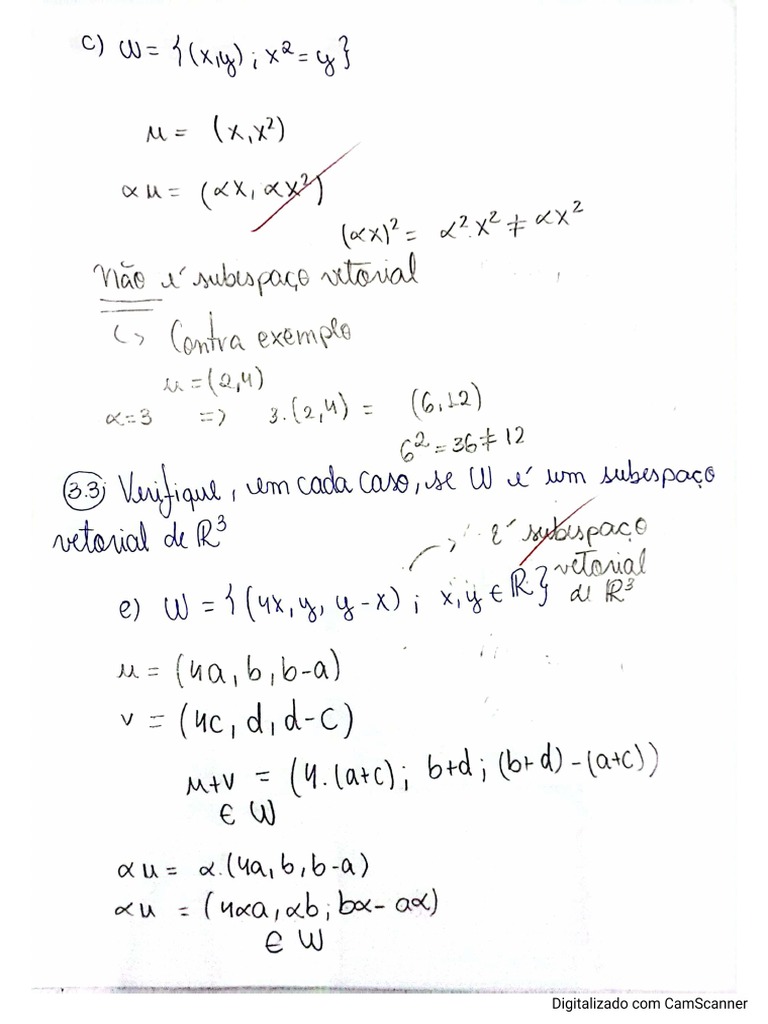 c) W = {(x,y) ; x² = y}
u = (x, x²)
αu = (αx, αx²)
(αx)² = α².x² ≠ αx²
Não é subespaço vetorial
↳ Contra exemplo
u = (2,4)
α=3 => 3.(2,4) = (6,12)
6² = 36 ≠ 12
3.3) Verifique, em cada caso, se W é um subespaço
vetorial de ℝ³
→ é subespaço
vetorial
de ℝ³
e) W = {(4x, y, y-x) ; x,y ∈ ℝ}
u = (4a, b, b-a)
v = (4c, d, d-c)
u+v = (4.(a+c) ; b+d ; (b+d) - (a+c))
∈ W
αu = α.(4a, b, b-a)
αu = (4αa, αb ; bα - aα)
∈ W
Digitalizado com CamScanner